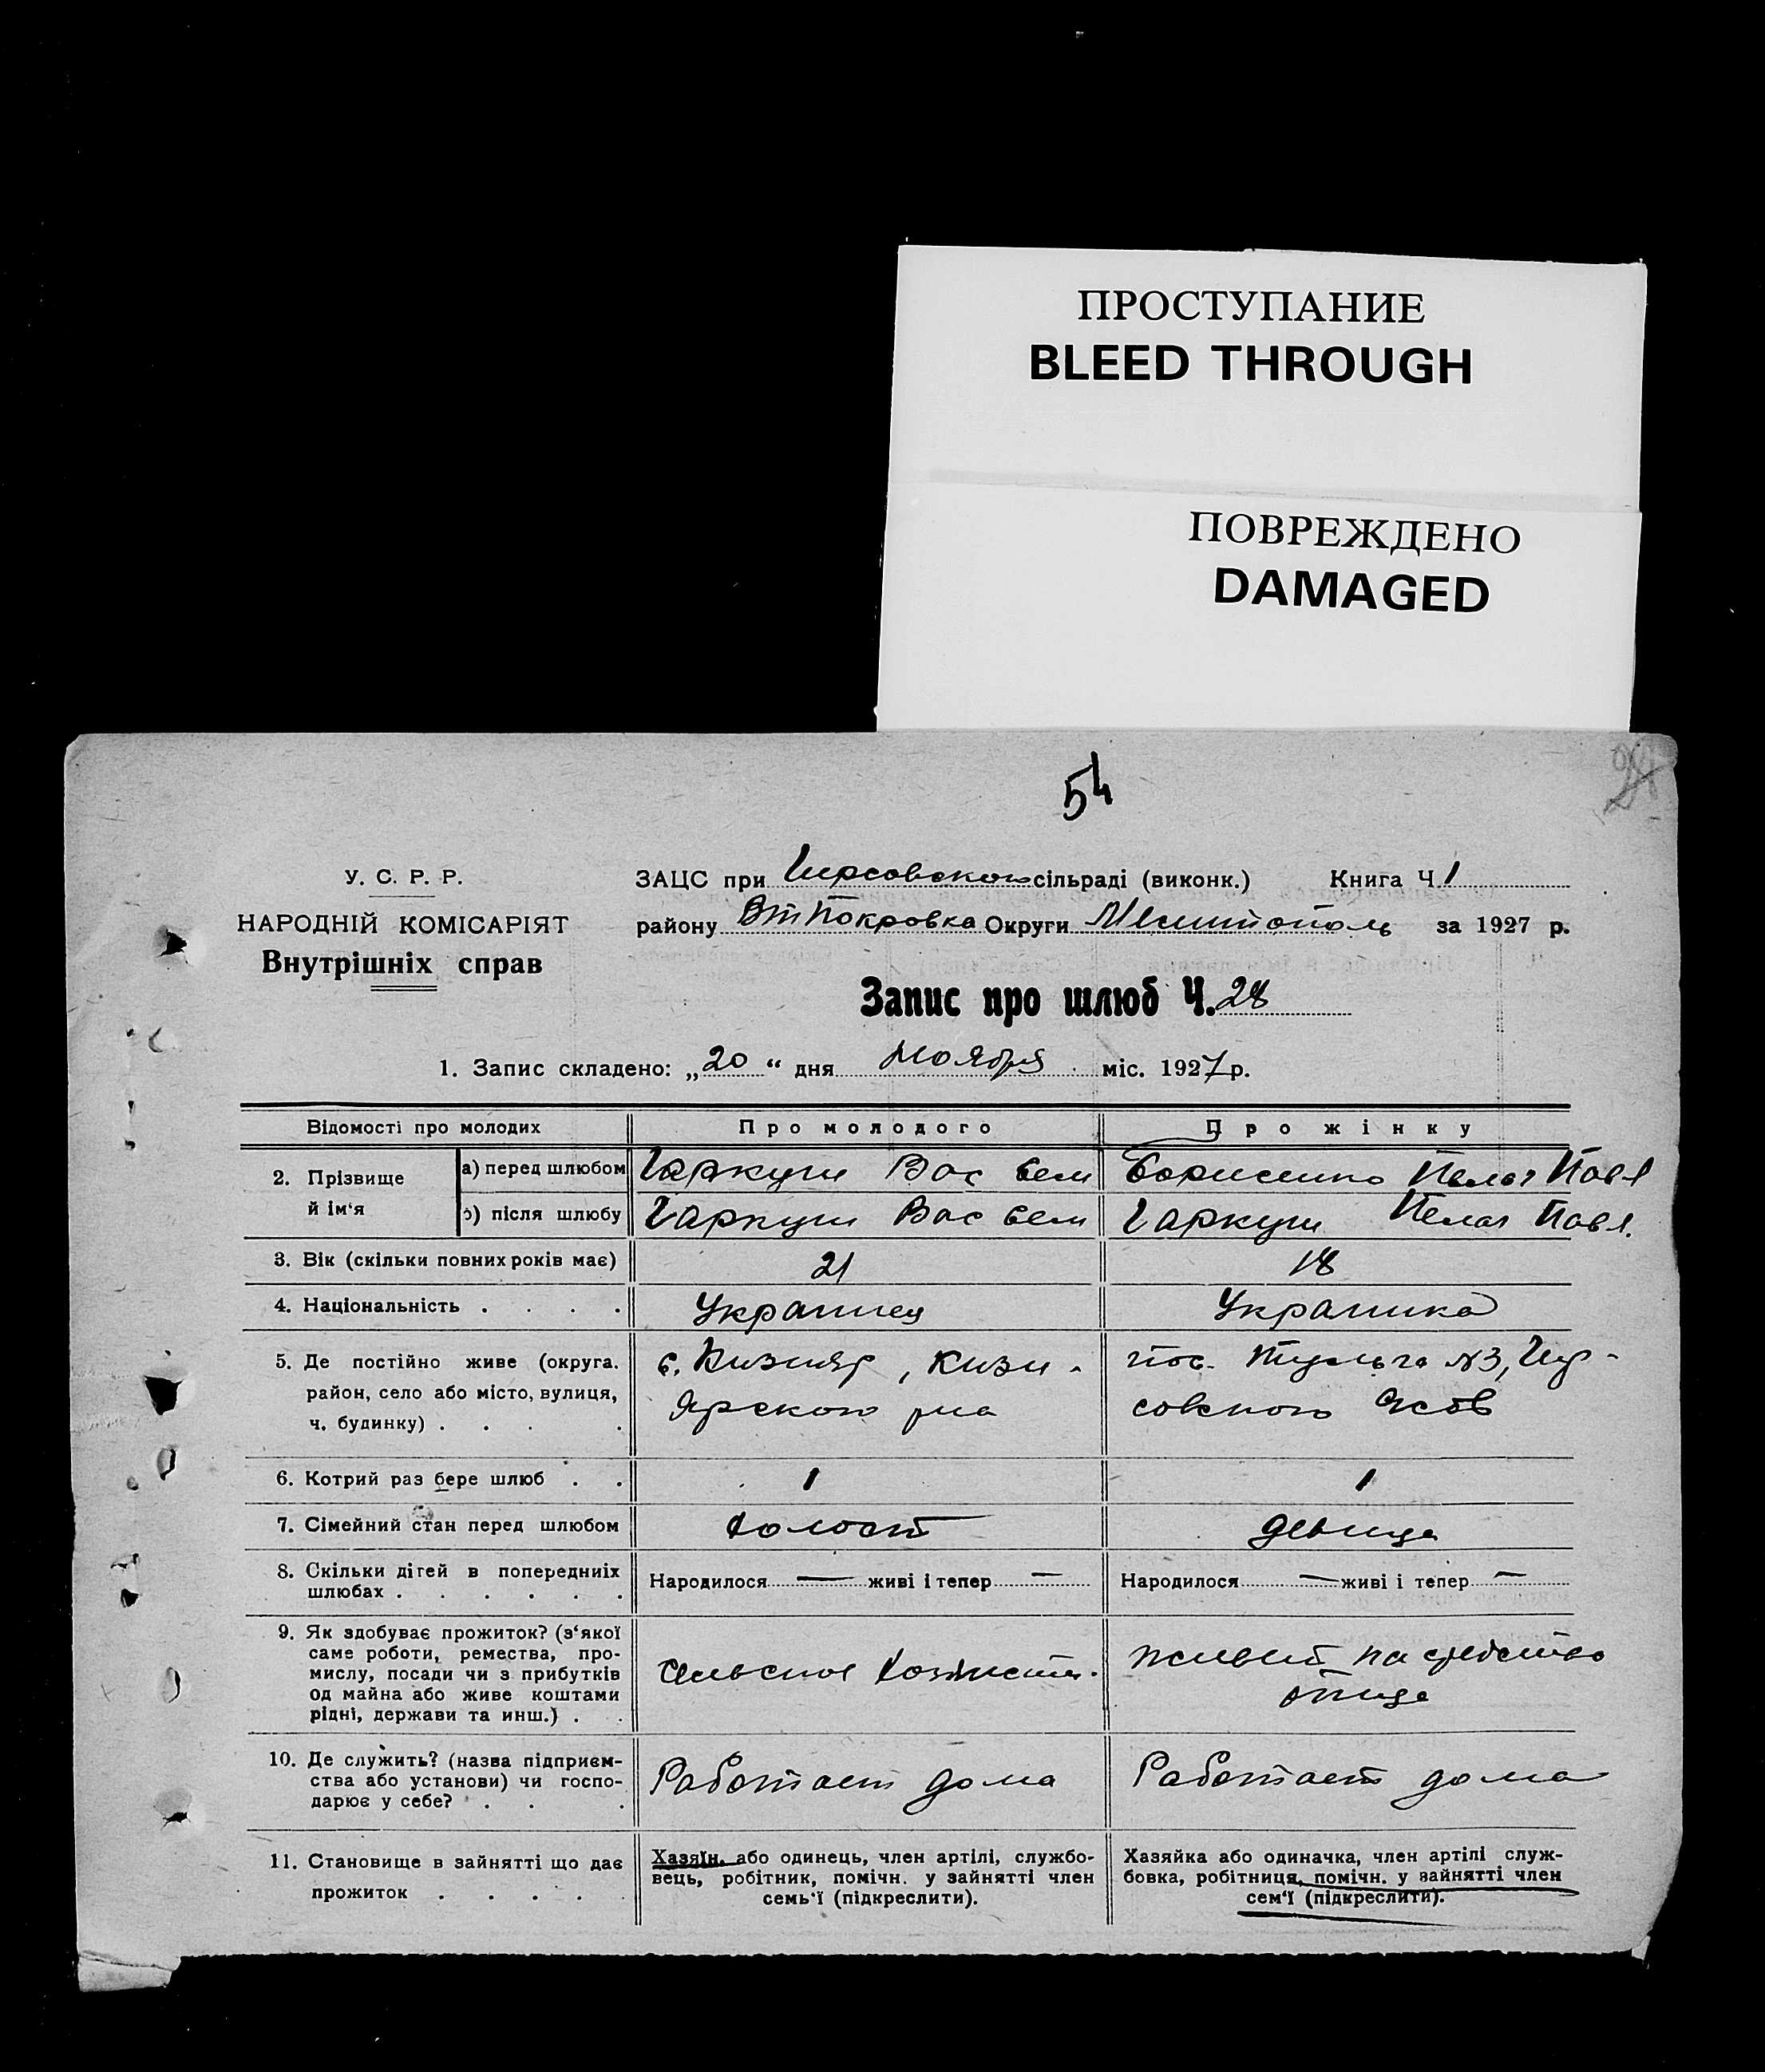 ПРОСТУПАНИЕ
BLEED THROUGH
ПОВРЕЖДЕНО
DAMAGED
54
У. С. Р. Р.
НАРОДНІЙ КОМІСАРІЯТ
Внутрішніх справ
ЗАЦС при Гирсовском сільраді (виконк.) Книга Ч. 1
району ВтПокровка Округи Мелитополь за 1927 р.
Запис про шлюб Ч. 28
1. Запис складено: „20“ дня Ноября міс. 1927 р.
Відомості про молодих Про молодого Про жінку
2. Прізвище й ім‘я
а) перед шлюбом Гаркуши Вас Сем Борисенко Пелаг Павл
б) після шлюбу Гаркуши Вас Сем Гаркуши Пелаг Павл.
3. Вік (скільки повних років має) 21 18
4. Національність . . . . Украинец Украинка
5. Де постійно живе (округа. район, село або місто, вулиця, ч. будинку) . . . .
с. Кизияр, Кизи-
ярского рна
пос. №3, Гир-
совского
6. Котрий раз бере шлюб . . 1 1
7. Сімейний стан перед шлюбом холост девица
8. Скільки дітей в попередниіх шлюбах . . . . . .
Народилося — живі і тепер — Народилося — живі і тепер —
9. Як здобуває прожиток? (з‘якої
саме роботи, ремества, про-
мислу, посади чи з прибутків
од майна або живе коштами
рідні, держави та инш.) . .
Сельское хозяйств.
живет на средства
отца
10. Де служить? (назва підприєм-
ства або установи) чи госпо-
дарює у себе? . . .
Работает дома Работает дома
11. Становище в зайнятті що дає
прожиток . . . . .
Хазяїн, або одинець, член артілі, службо-
вець, робітник, помічн. у зайнятті член
семь‘ї (підкреслити).
Хазяйка або одиначка, член артілі служ-
бовка, робітниця, помічн. у зайнятті член
сем‘ї (підкреслити).